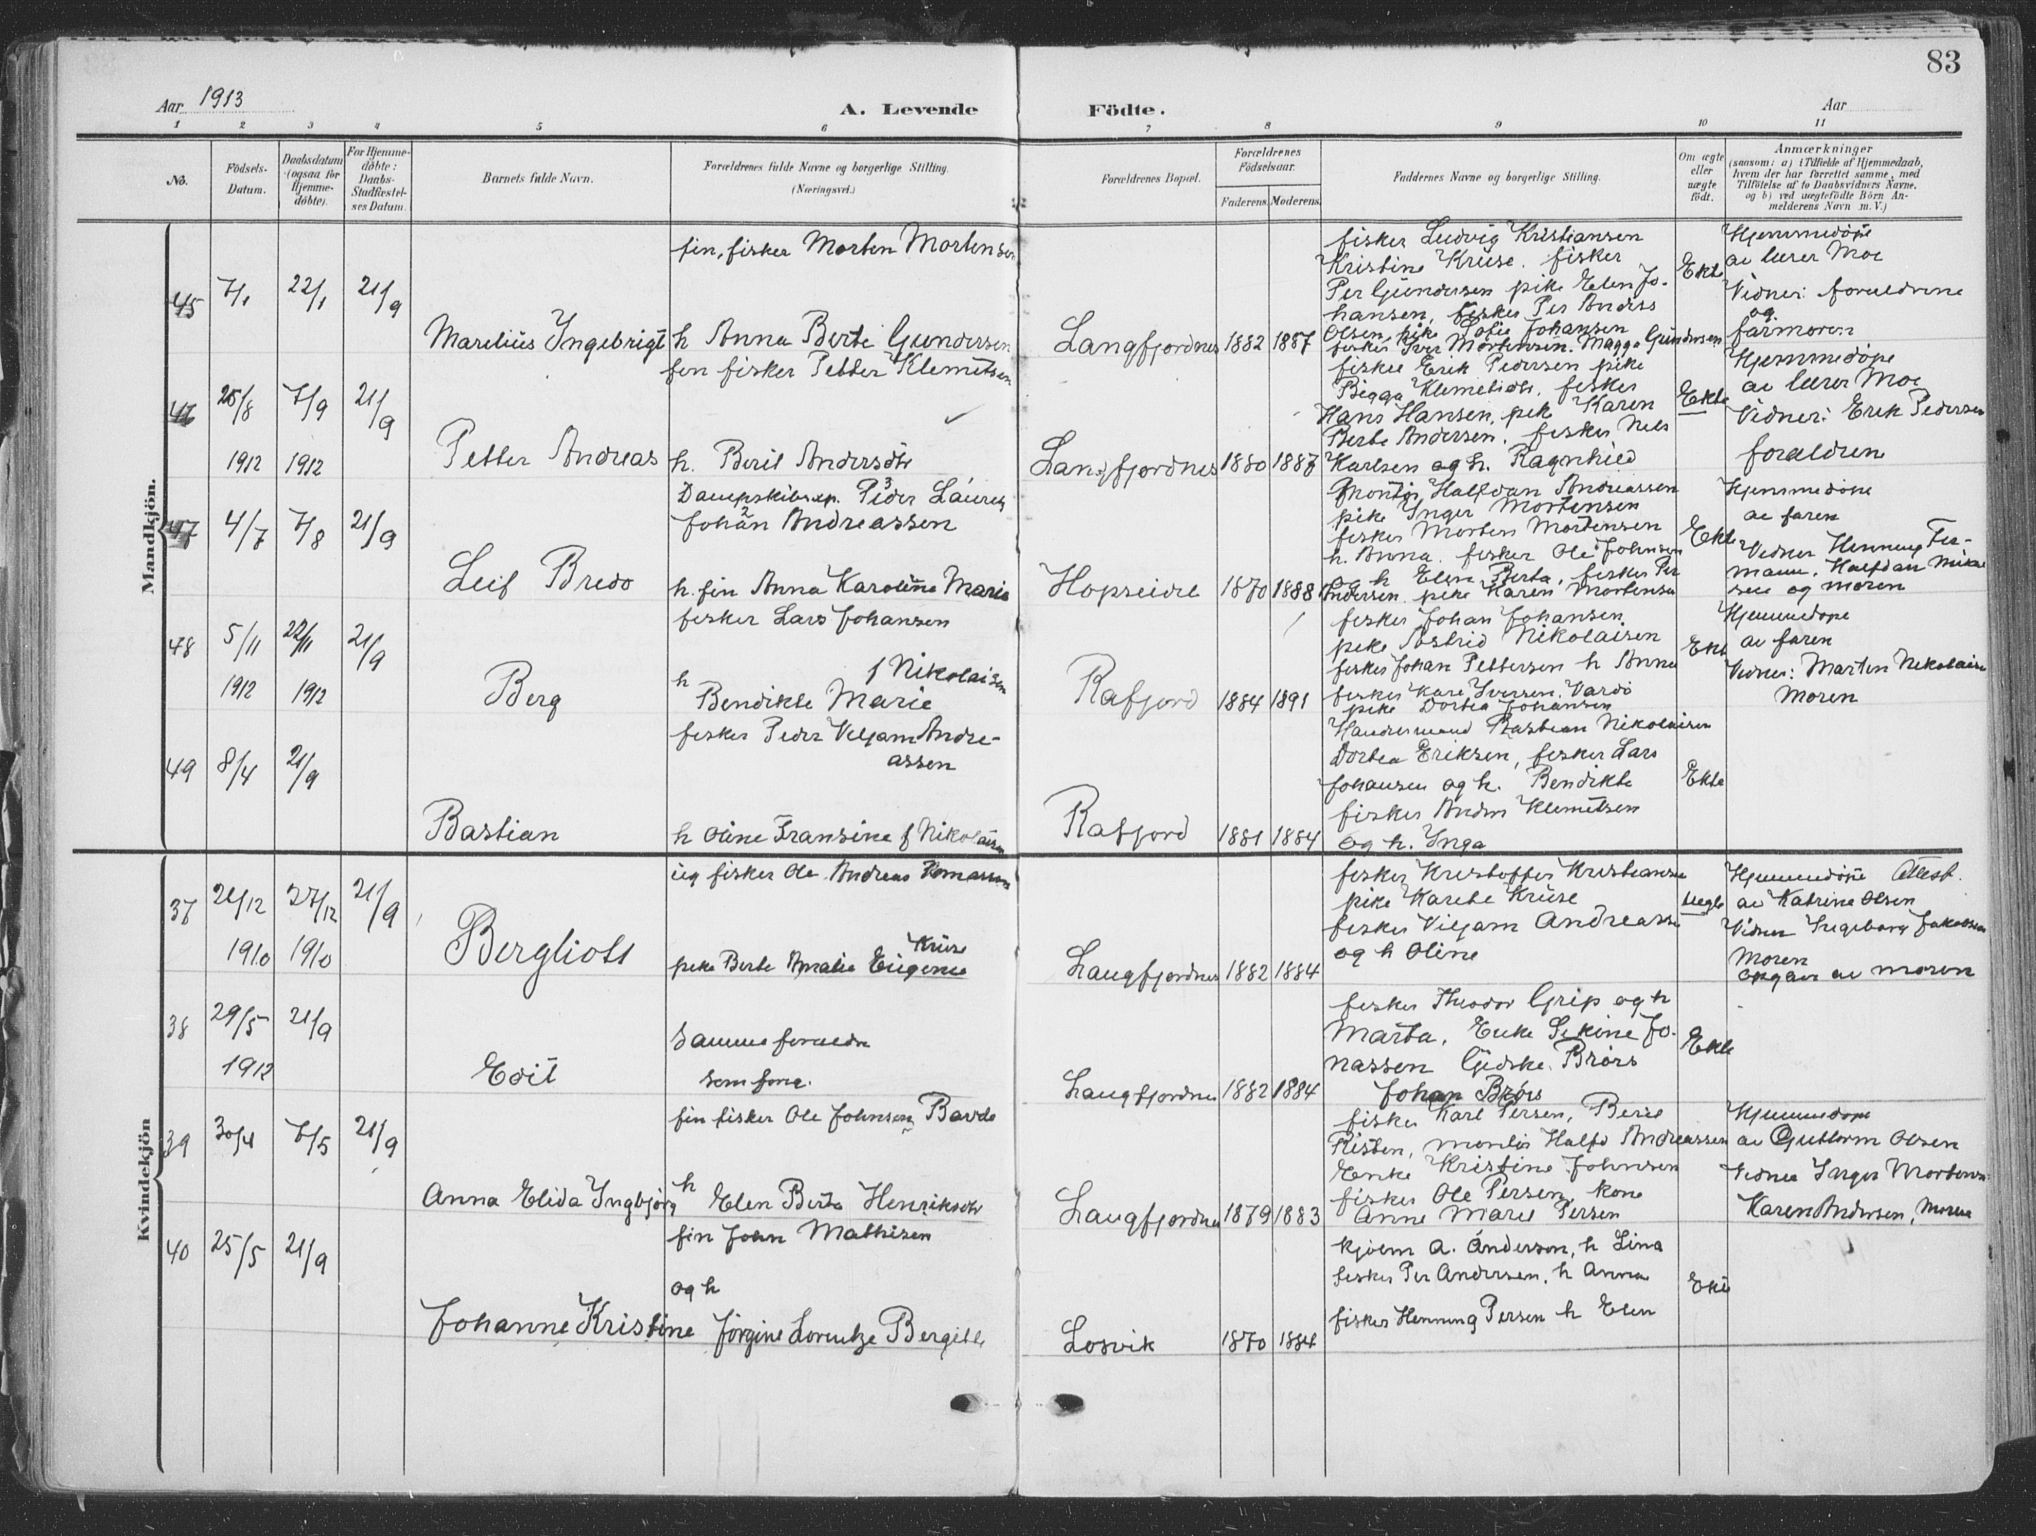 83
Aar 1913
A. Levende Födte.
Aar
1 2 3 4 5 6 7 8 9 10 11
No.
Födsels-
Datum.
Daabsdatum
(ogsaa for
Hjemme-
döbte).
For Hjemme-
döbte:
Daabs-
Stadfæstel-
ses Datum.
Barnets fulde Navn.
Forældrenes fulde Navne og borgerlige Stilling.
(Næringsvei.)
Forældrenes Bopæl.
Forældrenes
Födselsaar.
Faderens. Moderens.
Faddernes Navne og borgerlige Stilling.
Om ægte
eller
uægte
födt.
Anmærkninger
(saasom: a) i Tilfælde af Hjemmedaab,
hvem der har forrettet samme, med
Tilföielse af to Daabsvidners Navne,
og b) ved uægtefödte Börn An-
melderens Navn m. V.)
Mandkjön.
45 7/1 22/1 21/9
Marelius Ingebrigt
fin, fisker Morten Mortensen
h Anna Berte Gundersen
Langfjordnes 1882 1887
fisker Ludvig Kristiansen
Kristine Kruse. fisker
Per Gundersen pike Elen Jo-
hansen, fisker Per Anders
Olsen, pike Sofie Johansen
fisker Iver Mortensen. Magga Gundersen
Ekte
Hjemmedøpt
av lærer Moe
Vidner: forældrene
og
farmoren
46 25/8 7/9 21/9
1912 1912
Petter Andreas
fin fisker Petter Klemetsen
h. Beril Andersdtr
Langfjordnes 1880 1887
fisker Erik Pedersen pike
Bigga Klemetsdtr, fisker
Hans Hansen, pike Karen
Berte Andersen. fisker Nels
Karlsen og h. Ragnhild
Ekte
Hjemmedøpt
av lærer Moe
Vidner: Erik Pedersen
forældren
47 4/7 7/8 21/9
Leif Bredo
Dampskibsexp. Peder Laurits
Johan Andreassen
h. fin Anna Karoline Marie
Hopseidet 1870 1888
Montør Halfdan Andreassen
pike Inger Mortensen
fisker Morten Mortensen
h. Anna. fisker Ole Johnsen
og h Elen Berta, fisker Per
Andersen. pike Karen Mortensen
Ekte
Hjemmedøpt
av faren
Vidner Henning
Halfdan
og moren
48 5/11 22/11 21/9
1912 1912
Berg
fisker Lars Johansen
h f Nikolaisen
Bendikte Marie
Rafjord 1884 1891
fisker Johan Johansen
pike Astrid Nikolaisen
fisker Johan Pettersen h Anna
fisker Kare Iversen, Vardø
pike Dortea Johansen
Ekt
Hjemmedøpt
av faren
Vidner: Marten Nikolaisen
Moren
49 8/4 21/9
Bastian
fisker Peder Viljam Andre-
assen
h Oline Fransine f Nikolaisen
Rafjord 1881 1884
Handelsmand Bastian Nikolaisen
Dortea Eriksen, fisker Lars
Johansen og h. Bendikte
fisker Anders Klemetsen
og h. Inga
Ekte
Kvindekjön
37 21/12 27/12 21/9
1910 1910
Bergliott
ug fisker Ole Andreas Tomassen
Kruse
pike Berte Amalie Eugenie
Langfjordnes 1882 1884
fisker Kristoffer Kristiansen
pike Karete Kruse
fisker Viljam Andreassen
og h Oline
Uegte
Hjemmedøpt Attest.
av Katrine Olsen
Vidner Ingeborg Jakobsen
Moren
opgav av moren
38 29/5 21/9
1912
Edit
Samme forældre
som forre.
Langfjordnes 1882 1884
fisker Theodor Grip og h
Marta, Enke Sekine Jo-
nassen Gjedske. Brørs
Johan Brørs
Ekte
39 30/4 6/5 21/9
Anna Elida Ingbjørg
fin fisker Ole Johnsen Bavde
h Elen Berta Henriksdtr
Langfjordnes 1879 1883
fisker Karl Persen, Beret
Risten, montør Halfd Andreassen
Enke Kristine Johnsen
fisker Ole Persen, kone
Anne Maret Persen
Hjemmedøpt
av Guttorm Olsen
Vidner Inger Mortensen
Karen Andersen, Moren
40 25/5 21/9
Johanne Kristine
fin John Mathisen
og h
Jørgine Lorentze Bergitte
Losvik 1870 1884
kjøbm A. Anderson, h Lina
fisker Per Andersen, h Anna
fisker Henning Persen h Elen
Ekte